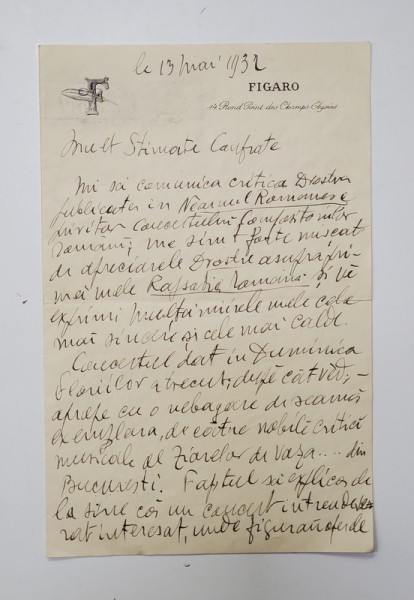 le 13 mai 1932
F
FIGARO
14 Rond Point des Champs Elysées
Mult Stimate Confrate
Mi se comunica critica Dvostra
publicata in Neamul Romanesc
privitor concertului Compozitorilor
romani; me simt foarte miscat
de aprecierile Dvostre asupra pri-
mei mele Rapsodie Romana si va
exprim multumirele mele cele
mai sincere si cele mai calde.
Concertul dat in Dumineca
Floriilor a trecut, dupe cât ved,
aprope cu o nebagare de seama
exemplara, de catre nobile critici
musicale al ziarelor de vaza.... din
Bucuresti. Faptul se explica de
la sine caci un concert intr'adeve-
rat interesat, unde figurau ofer de